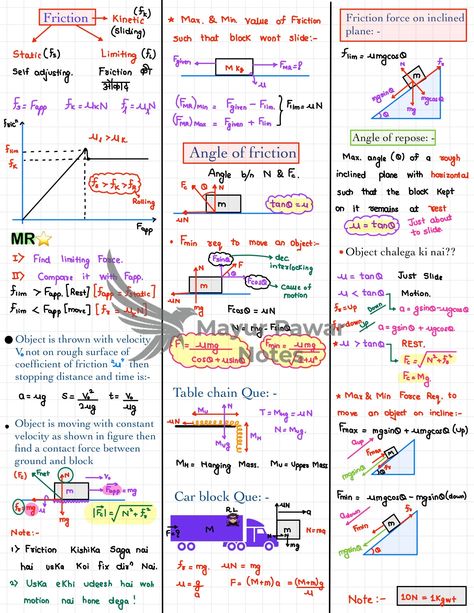 Friction
Kinetic (fk)
(Sliding)
Static (fs)
Limiting (fL)
Self adjusting.
Friction की
औकाद
fs = Fapp
fk = μkN
fl = μsN
fric^n
flim
fk
μs > μk
fs > fk > fR
Rolling
Fapp
MR
I> Find limiting Force.
II> Compare it with Fapp.
flim > Fapp. [Rest] [fapp = fstatic]
flim < Fapp [move] [fs = μkN]
Object is thrown with velocity
V₀ not on rough surface of
coefficient of friction "μ" then
stopping distance and time is:-
a = μg
S = V₀²/2μg
t = V₀/μg
Object is moving with constant
velocity as shown in figure then
find a contact force between
ground and block
(Fc)
Fnet
N
V₀
m
Fapp = mg
fs = mg
mg
|Fc| = √N² + fs²
Note:-
1> Friction Kishika Saga nai
hai uska Koi fix disⁿ Nai.
2> Uska ekhi udgesh hai woh
motion nai hone dega!
* Max. & Min value of Friction
such that block wont slide:-
Fgiven
M Kg
FMR = ?
μ
(FMR)Min = Fgiven - Flim
(FMR)Max = Fgiven + Flim
Flim = μN
Angle of friction
Angle b/n N & Fc.
Fc
N
θ
m
F
mg
tanθ = μ
Fmin req. to move an object:-
Fsinθ
dec
interlocking
N
F
θ
Fcosθ
m
cause of
motion
mg
Fcosθ = μN
N = mg - Fsinθ
F = μmg/cosθ + μsinθ
Fmin = μmg/√1 + μ²
Mayur Pawar
Notes
Table chain Que:-
Mu
MH
T = MHg = μN
N = Mug.
MH = Hanging Mass.
Mu = Upper Mass
Car block Que:-
R.L
μN
M
m
N = ma
F = ?
mg
fs = mg.
μN = mg
μ = g/a
F = (M+m)a = (M+m)g/μ
Friction force on inclined
plane:-
flim = μmgcosθ
fs
m
mgsinθ
mgcosθ
θ
Angle of repose:-
Max. angle (θ) of a rough
inclined plane with horizontal
such that the block Kept
on it remains at rest
μ = tanθ
Just about
to slide
Object chalega ki nai??
μ = tanθ
Just Slide
μ < tanθ
Motion.
fs = up
Down
a = gsinθ - μgcosθ
fs = Down
up
a = gsinθ + μgcosθ
μ > tanθ
REST.
Fc = √N² + fs²
Fc = Mg
* Max & Min Force Req. to
move an object on incline:-
Fmax = mgsinθ + μmgcosθ (up)
aup
m
mgsinθ
Fmin = μmgcosθ - mgsinθ (down)
adown
m
mgsinθ
Note:-
10N = 1Kgwt